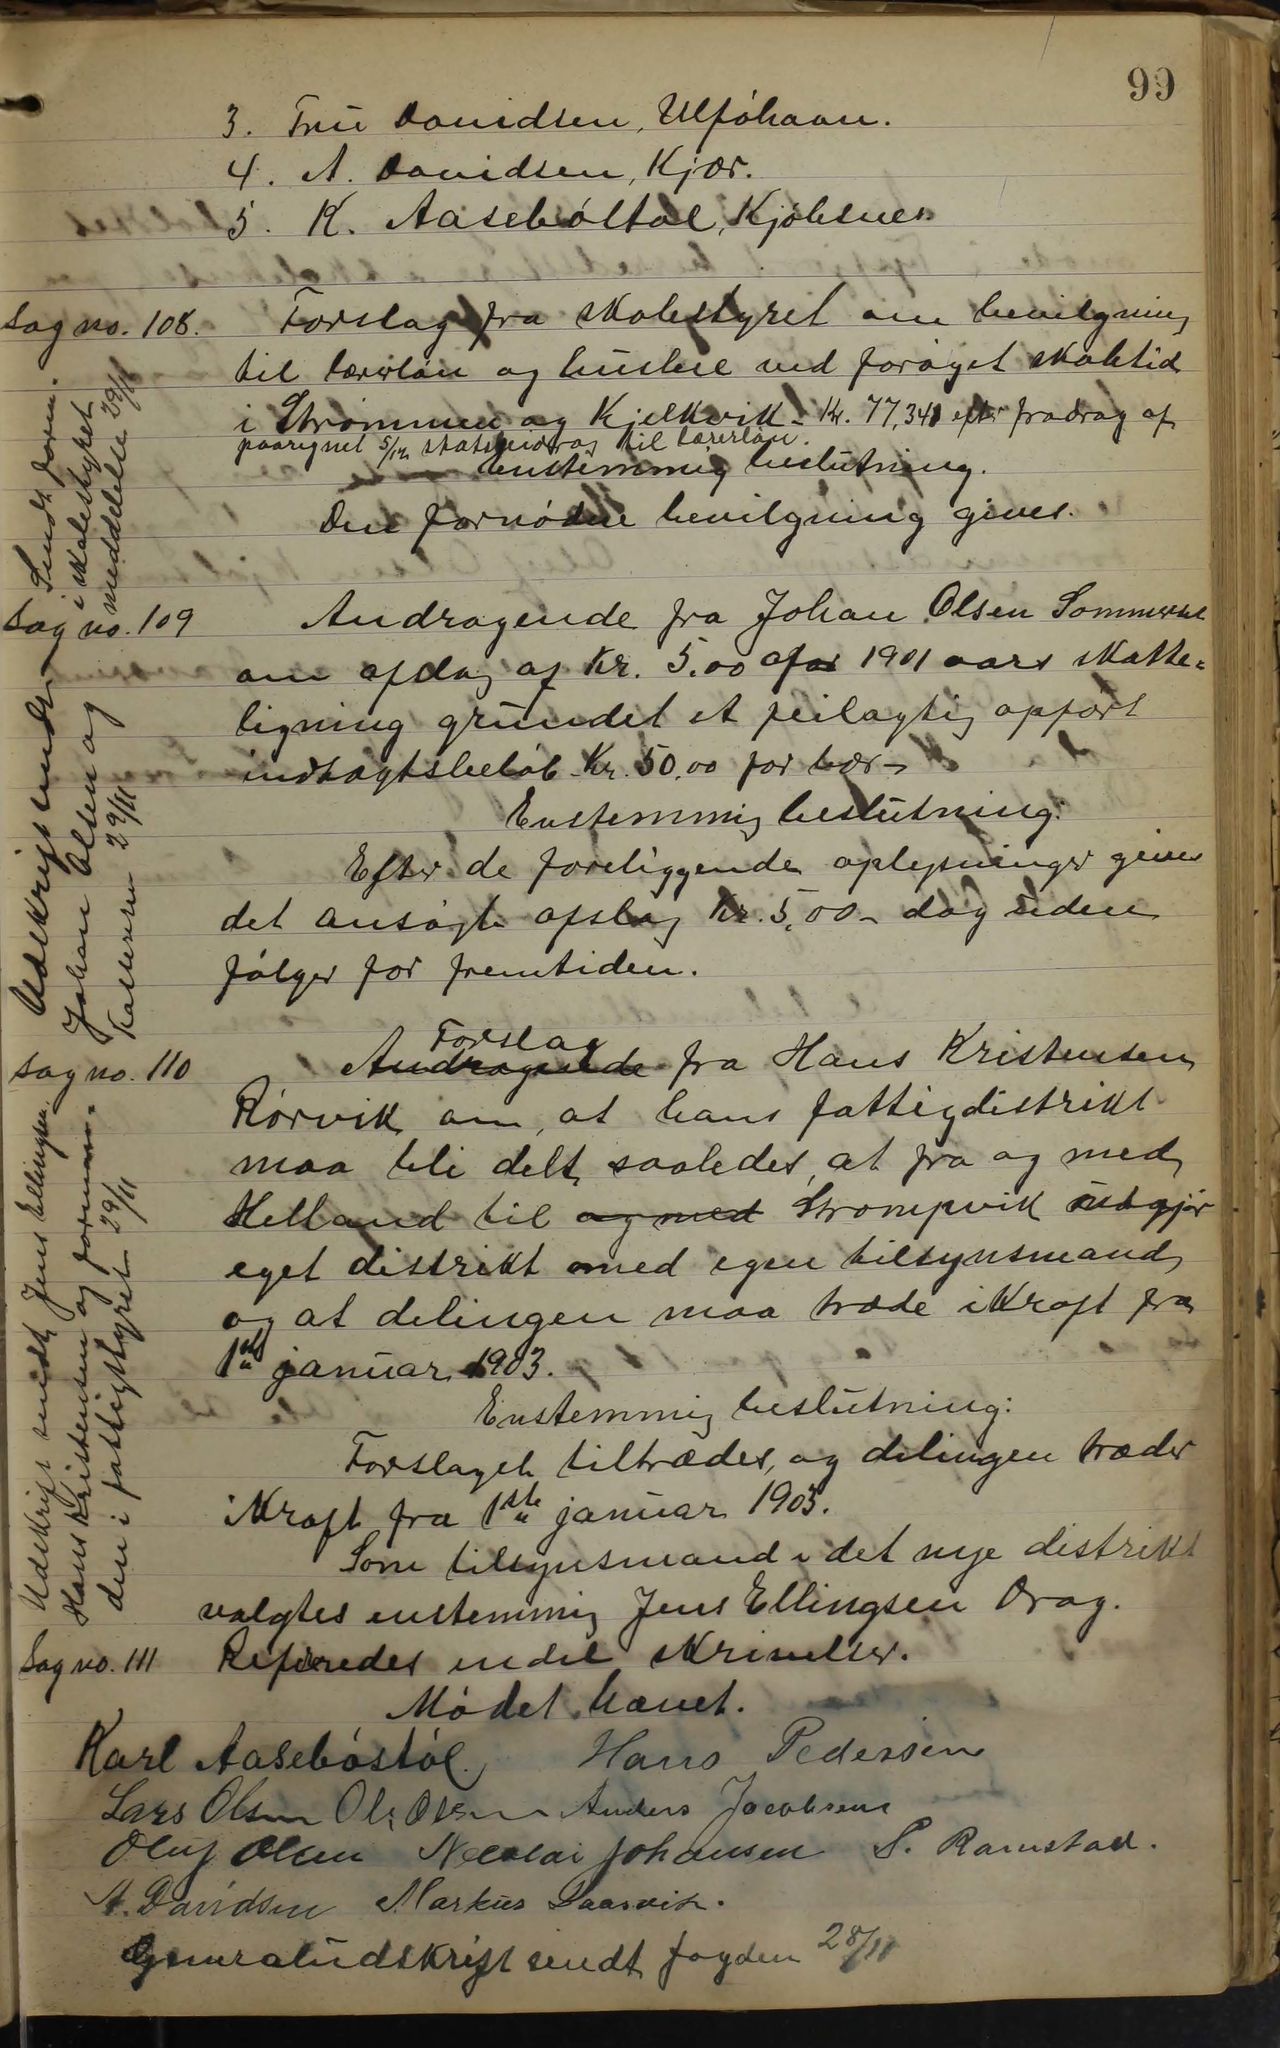 99
3. Frü Davidsen, Ulføhavn.
4. A. Davidsen, Kjær.
5. K. Aasebøstøl, Kjøbsnes.
Sag no. 108.
Forslag fra skolestyret om bevilgning
til lærerløn og husleie ved forøget skoletid
i Strømmen og Kjelkvik - Kr. 77,34 efter fradrag af
paaregnet 5/12 statsbidrag til lærerløn.
Enstemmig beslutning.
Den fornødne bevilgning gives.
Sendt form.
i skolestyret
meddelelse 29/11
Sag no. 109
Andragende fra Johan Olsen Sommerset
om afslag af Kr. 5.00 af 1901 aars skatte=
ligning grundet et feilagtig opført
indtægtsbeløb Kr. 50.00 for bær -
Enstemmig beslutning:
Efter de foreliggende oplysninger gives
det ansøgte afslag Kr. 5.00 - dog uden
følger for fremtiden.
Udskrift sendt
Johan Olsen og
Kassereren 29/11
Sag no. 110
Forslag
Andragende fra Hans Kristensen
Rørvik om, at hans fattigdistrikt
maa bli delt saaledes, at fra og med
Helland til og med Strompvik udgjør
eget distrikt med egen tilsynsmand
og at delingen maa træde i kraft fra
1ste januar 1903.
Enstemmig beslutning:
Forslaget tiltrædes, og delingen træder
i kraft fra 1ste januar 1903.
Som tilsynsmand i det nye distrikt
valgtes enstemmig Jens Ellingsen Drag.
Udskrift sendt Jens Ellingsen
Hans Kristensen og forman=
den i fattigstyret 29/11
Sag no. 111
Refereredes endel skrivelser.
Mødet hævet.
Karl Aasebøstøl. Hans Pedersen
Lars Olsen Ole Olsen Anders Jacobsen
Oluf Olsen Nicolai Johansen S. Ramstad.
A. Davidsen Markus Saarvik.
Generaludskrift sendt fogden 28/11